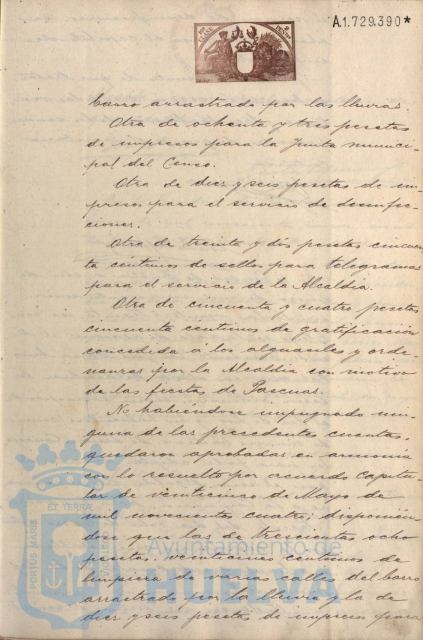 A.1.729.390*
barro arrastrado por las lluvias.
Otra de ochenta y tres pesetas
de impresos para la Junta munici-
pal del Censo.
Otra de diez y seis pesetas de im-
presos para el servicio de desinfec-
ciones.
Otra de treinta y dos pesetas cincuen-
ta céntimos de sellos para telegramas
para el servicio de la Alcaldía.
Otra de cincuenta y cuatro pesetas
cincuenta centimos de gratificación
concedida á los alguaciles y orde-
nanzas por la Alcaldía con motivo
de las fiestas de Pascuas.
No habiéndose impugnado nin-
guna de las precedentes cuentas,
quedaron aprobadas en armonía
con lo resuelto por acuerdo Capitu-
lar de veinticinco de Mayo de
mil novecientos cuatro, disponién-
dose que las de trescientas ocho
pesetas céntimos de
limpieza de varias calles del barro
arrastrado por la lluvia y la de
diez y seis pesetas de impresos para
ET TERRA
PORTUS MARIS
Ayuntamiento de
HUELVA